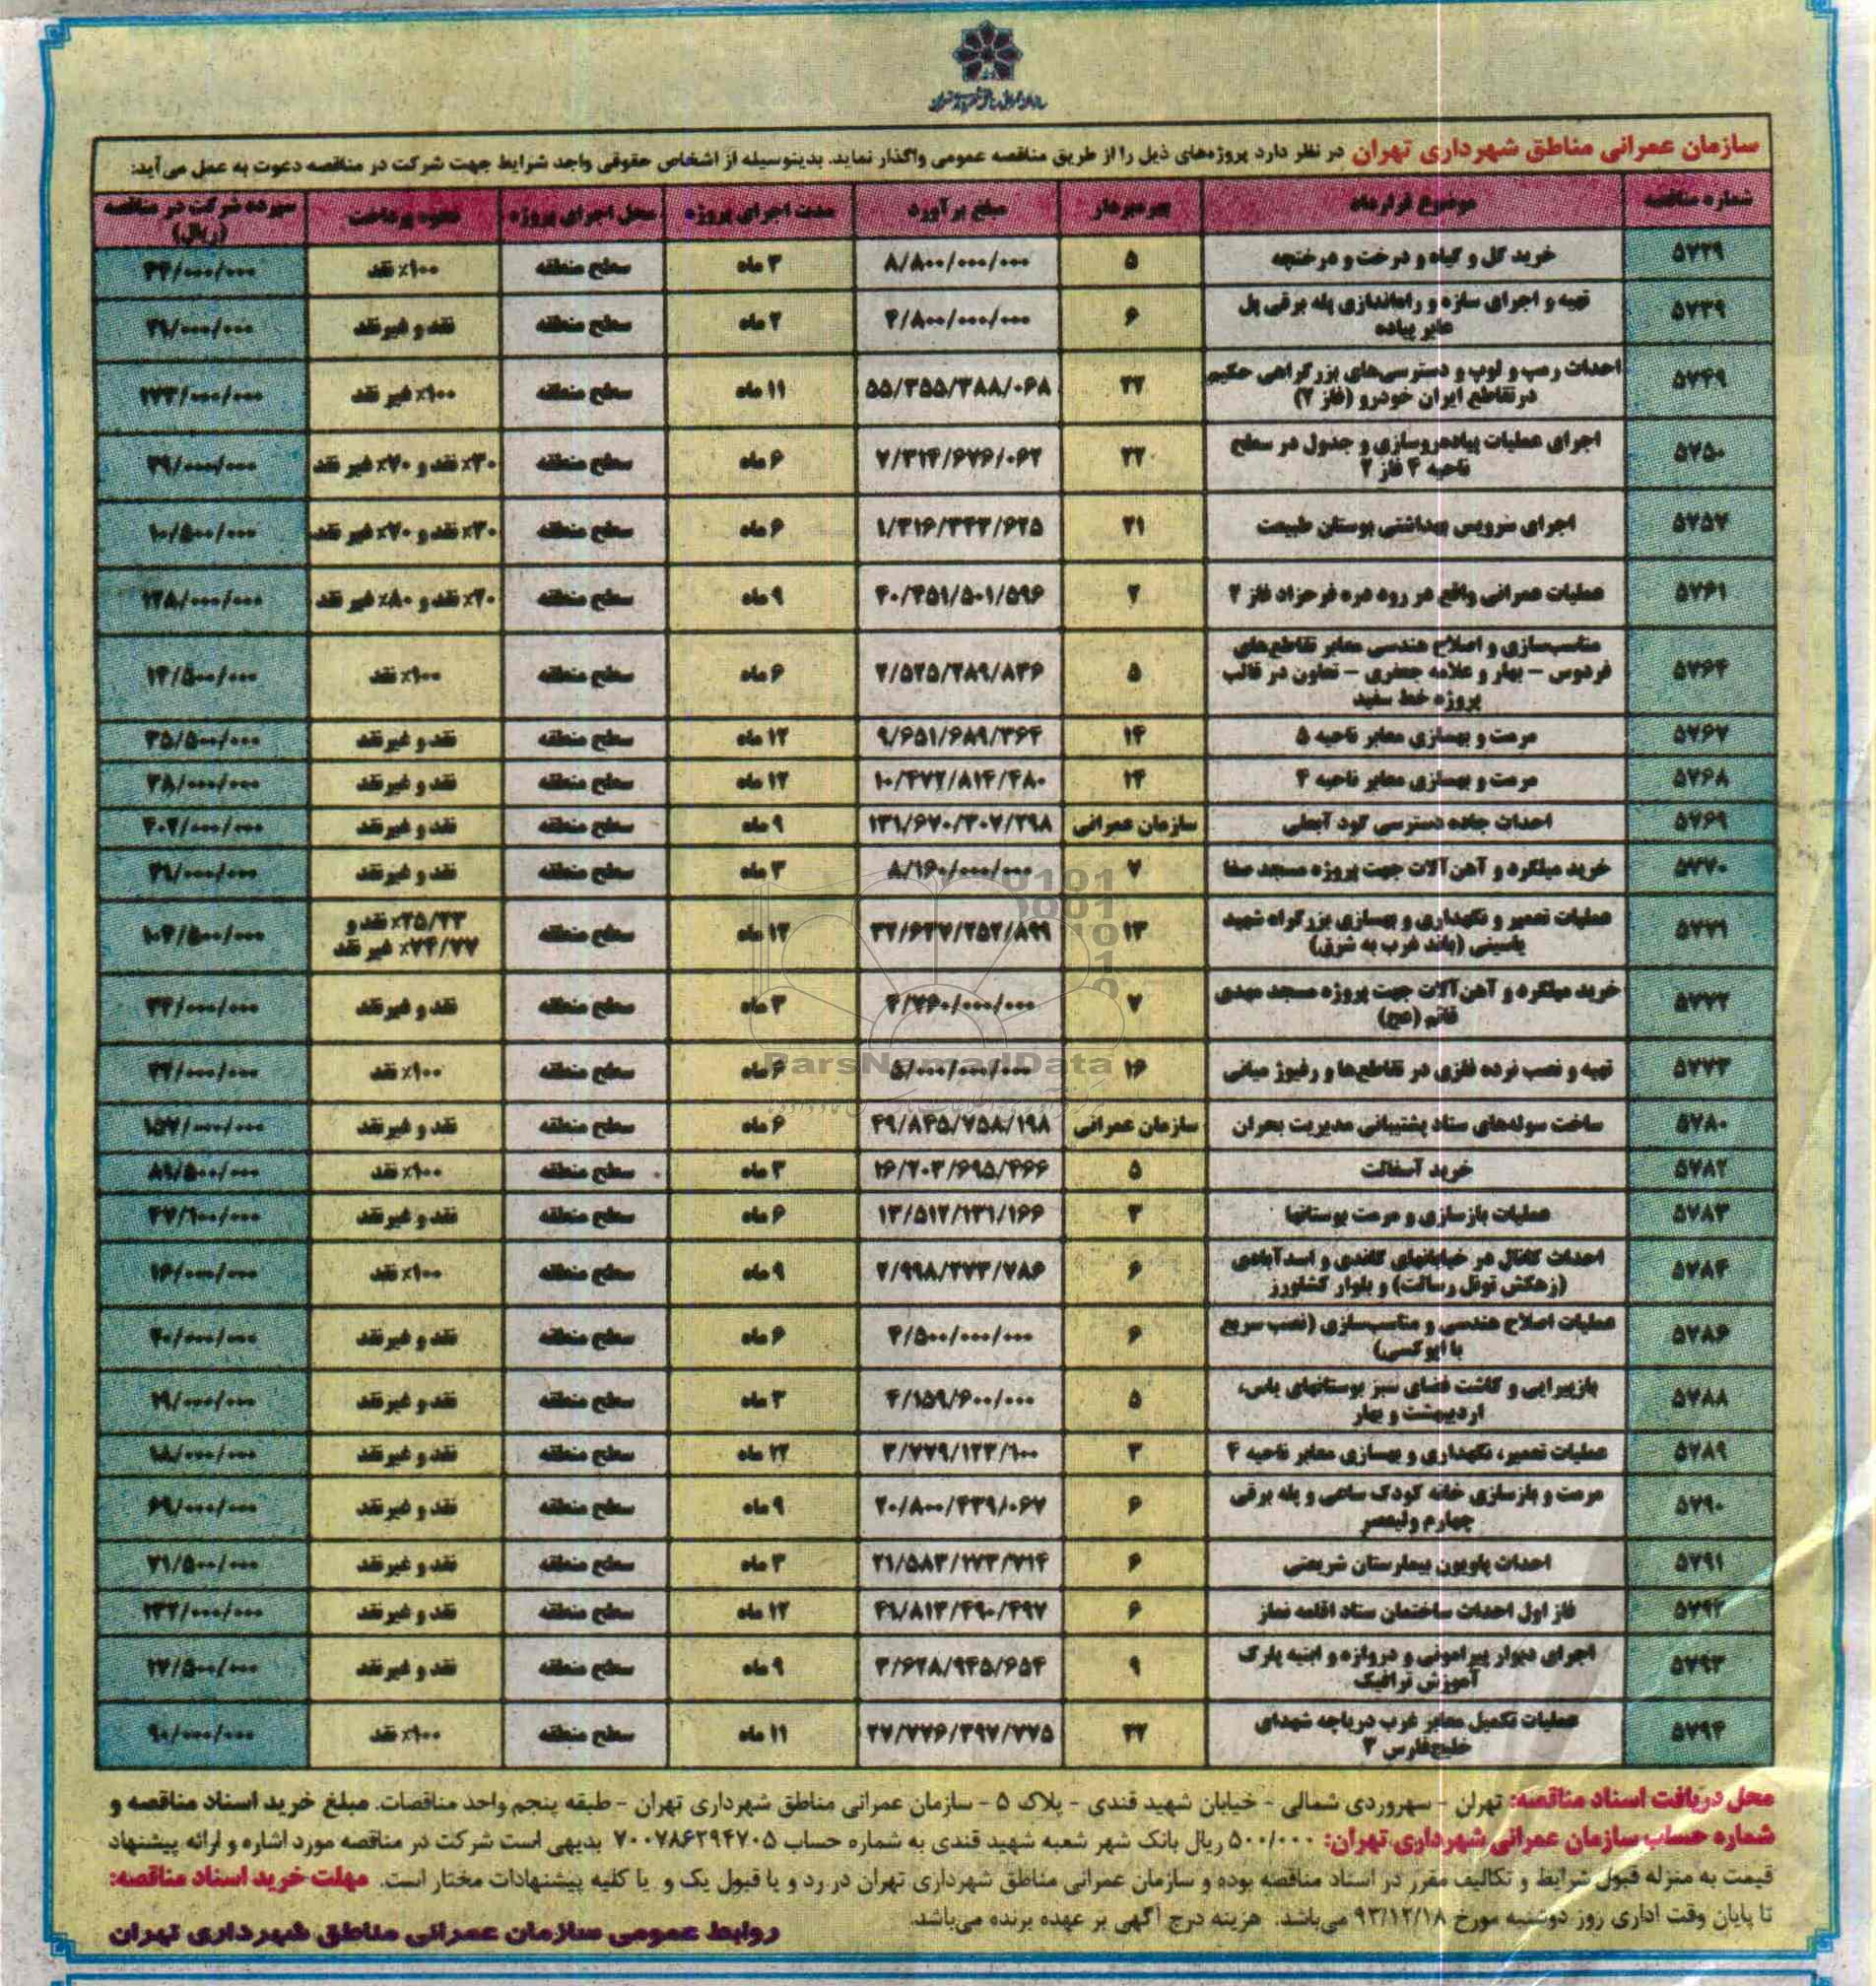 سازمان عمرانی مناطق شهرداری تهران در نظر دارد پروژه‌های ذیل را از طریق مناقصه عمومی واگذار نماید. بدینوسیله از اشخاص حقوقی واجد شرایط جهت شرکت در مناقصه دعوت به عمل می‌آید:
شماره مناقصه موضوع قرارداد بهره‌بردار مبلغ برآورد مدت اجرای پروژه محل اجرای پروژه نحوه پرداخت سپرده شرکت در مناقصه (ریال)
خرید گل و گیاه و درخت و درختچه ۵ ۸/۸۰۰/۰۰۰/۰۰۰ ۳ ماه سطح منطقه ۱۰۰٪ نقد
۵۷۳۹ تهیه و اجرای سازه و راه‌اندازی پله برقی پل
عابر پیاده ۶ سطح منطقه نقد و غیرنقد
۵۷۴۹ احداث رمپ و لوپ و دسترسی‌های بزرگراهی حکیم
درتقاطع ایران خودرو (فاز ۲) ۲۲ ۱۱ ماه سطح منطقه ۱۰۰٪ غیر نقد
۵۷۵۰ اجرای عملیات پیاده‌روسازی و جدول در سطح
ناحیه ۴ فاز ۲ ۲۲ ۶ ماه سطح منطقه ۳۰٪ نقد و ۷۰٪ غیر نقد
۵۷۵۷ اجرای سرویس بهداشتی بوستان طبیعت ۲۱ ۶ ماه سطح منطقه ۳۰٪ نقد و ۷۰٪ غیر نقد ۱۰/۵۰۰/۰۰۰
۵۷۶۱ عملیات عمرانی واقع در رود دره فرحزاد فاز ۲ ۲ ۹ ماه سطح منطقه ۲۰٪ نقد و ۸۰٪ غیر نقد
۵۷۶۴ مناسب‌سازی و اصلاح هندسی معابر تقاطع‌های
فردوس - بهار و علامه جعفری - تعاون در قالب
پروژه خط سفید ۵ ۶ ماه سطح منطقه ۱۰۰٪ نقد ۱۴/۵۰۰/۰۰۰
۵۷۶۷ مرمت و بهسازی معابر ناحیه ۵ ۱۴ ۹/۶۵۱/۶۸۹/۳۶۴ ۱۲ ماه سطح منطقه نقد و غیرنقد ۳۵/۵۰۰/۰۰۰
۵۷۶۸ مرمت و بهسازی معابر ناحیه ۴ ۱۴ ۱۰/۴۷۲/۸۱۴/۴۸۰ ۱۲ ماه سطح منطقه نقد و غیرنقد ۳۸/۰۰۰/۰۰۰
۵۷۶۹ احداث جاده دسترسی گود آبعلی سازمان عمرانی ۹ ماه سطح منطقه نقد و غیرنقد
۵۷۷۰ خرید میلگرد و آهن‌آلات جهت پروژه مسجد صفا ۷ ۸/۱۶۰/۰۰۰/۰۰۰ ۳ ماه سطح منطقه نقد و غیرنقد
۵۷۷۱ عملیات تعمیر و نگهداری و بهسازی بزرگراه شهید
یاسینی (باند غرب به شرق) ۱۳ ۱۲ ماه سطح منطقه ۲۵/۲۳٪ نقد و
۷۴/۷۷٪ غیر نقد
۵۷۷۲ خرید میلگرد و آهن‌آلات جهت پروژه مسجد مهدی
قائم (عج) ۷ ۳ ماه سطح منطقه نقد و غیرنقد
۵۷۷۳ تهیه و نصب نرده فلزی در تقاطع‌ها و رفیوژ میانی ۱۶ ۵/۰۰۰/۰۰۰/۰۰۰ ۶ ماه سطح منطقه ۱۰۰٪ نقد
۵۷۸۰ ساخت سوله‌های ستاد پشتیبانی مدیریت بحران سازمان عمرانی ۶ ماه سطح منطقه نقد و غیرنقد ۱۵۷/۰۰۰/۰۰۰
۵۷۸۲ خرید آسفالت ۵ ۳ ماه سطح منطقه ۱۰۰٪ نقد
۵۷۸۳ عملیات بازسازی و مرمت بوستانها ۳ ۱۳/۵۱۲/۱۳۱/۱۶۶ ۶ ماه سطح منطقه نقد و غیرنقد
۵۷۸۴ احداث کانال در خیابانهای گاندی و اسدآبادی
(زهکش تونل رسالت) و بلوار کشاورز ۶ ۹ ماه سطح منطقه ۱۰۰٪ نقد ۱۶/۰۰۰/۰۰۰
۵۷۸۶ عملیات اصلاح هندسی و مناسب‌سازی (نصب سریع
با اپوکسی) ۶ ۶ ماه سطح منطقه نقد و غیرنقد
۵۷۸۸ بازپیرایی و کاشت فضای سبز بوستانهای یاس،
اردیبهشت و بهار ۵ ۴/۱۵۹/۶۰۰/۰۰۰ ۳ ماه سطح منطقه نقد و غیرنقد
۵۷۸۹ عملیات تعمیر، نگهداری و بهسازی معابر ناحیه ۴ ۳ سطح منطقه نقد و غیرنقد ۱۸/۰۰۰/۰۰۰
۵۷۹۰ مرمت و بازسازی خانه کودک ساعی و پله برقی
چهارم ولیعصر ۶ ۹ ماه سطح منطقه نقد و غیرنقد ۶۹/۰۰۰/۰۰۰
۵۷۹۱ احداث پاویون بیمارستان شریعتی ۶ ۳ ماه سطح منطقه نقد و غیرنقد ۷۱/۵۰۰/۰۰۰
۵۷۹۲ فاز اول احداث ساختمان ستاد اقامه نماز ۶ ۱۲ ماه سطح منطقه نقد و غیرنقد
۵۷۹۳ اجرای دیوار پیرامونی و دروازه و ابنیه پارک
آموزش ترافیک ۹ ۹ ماه سطح منطقه نقد و غیرنقد
۵۷۹۴ عملیات تکمیل معابر غرب دریاچه شهدای
خلیج‌فارس ۳ ۲۲ ۱۱ ماه سطح منطقه ۱۰۰٪ نقد ۹۰/۰۰۰/۰۰۰
ParsNamadData
محل دریافت اسناد مناقصه: تهران - سهروردی شمالی - خیابان شهید قندی - پلاک ۵ - سازمان عمرانی مناطق شهرداری تهران - طبقه پنجم واحد مناقصات. مبلغ خرید اسناد مناقصه و
شماره حساب سازمان عمرانی شهرداری تهران: ۵۰۰/۰۰۰ ریال بانک شهر شعبه شهید قندی به شماره حساب ۷۰۰۷۸۶۲۹۴۷۰۵ بدیهی است شرکت در مناقصه مورد اشاره و ارائه پیشنهاد
قیمت به منزله قبول شرایط و تکالیف مقرر در اسناد مناقصه بوده و سازمان عمرانی مناطق شهرداری تهران در رد و یا قبول یک و یا کلیه پیشنهادات مختار است. مهلت خرید اسناد مناقصه:
تا پایان وقت اداری روز دوشنبه مورخ ۹۳/۱۲/۱۸ می‌باشد. هزینه درج آگهی بر عهده برنده می‌باشد.
روابط عمومی سازمان عمرانی مناطق شهرداری تهران